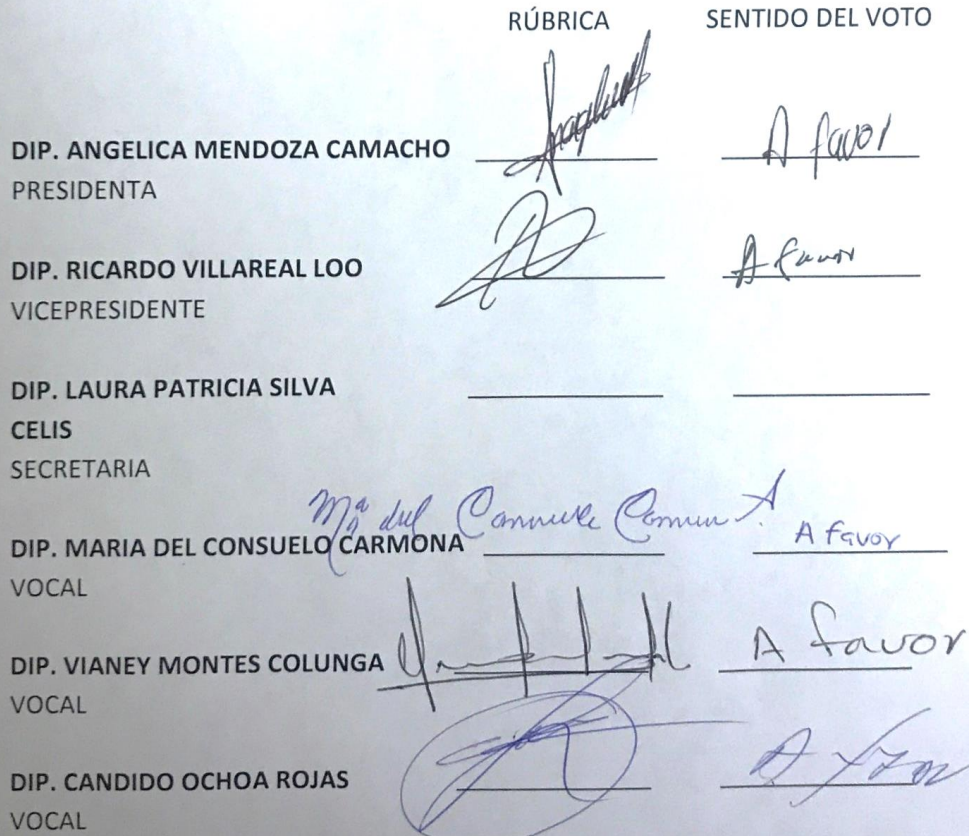 RÚBRICA SENTIDO DEL VOTO
DIP. ANGELICA MENDOZA CAMACHO A favor
PRESIDENTA
DIP. RICARDO VILLAREAL LOO A favor
VICEPRESIDENTE
DIP. LAURA PATRICIA SILVA
CELIS
SECRETARIA
Mª del
DIP. MARIA DEL CONSUELO CARMONA A favor
VOCAL
DIP. VIANEY MONTES COLUNGA A favor
VOCAL
DIP. CANDIDO OCHOA ROJAS A
VOCAL